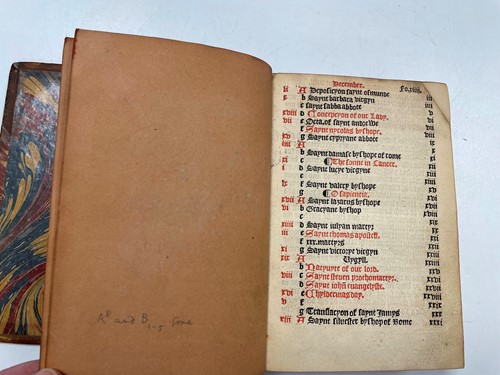 December. Fo.xiiii.
li A Deposicyon saynt osmunde iii
x b Saynt barbara virgyn iiii
c saynt sabba abbott v
xviii d Concepcyon of our Lady. v
vii e Octa. of saynt andrewe
f Saynt nycolas byshope.
xv g Saynt cypryane abbott ix
iiii A x
b Saynt damase byshope of rome xi
xi c ¶ The sonne in Caucer. xii
i d Saynt lucye virgyne xiii
e xiiii
ix f Saynt valery byshope xv
g ¶ O sapiencia. xvi
xvii A Saynt lazarus byshope xvii
vi b Gracyane byshop xviii
c xix
xiiii d Saynt iulyan martyr xx
iii e Saynt thomas apostell. xxi
f xxx. martyrs xxii
xi g Saynt victorye virgyn xxiii
xix A Vygyll. xxiiii
b Natyuyte of our lord. xxv
viii c Saynt steuen prothomartyr. xxvi
d Saynt iohn euangelyste. xxvii
xvi e Chyldermas day. xxviii
v f xxix
g Translacyon of saynt Jamys xxx
xiii A Saynt siluester byshop of Rome xxxi
R8 and B1-5 gone